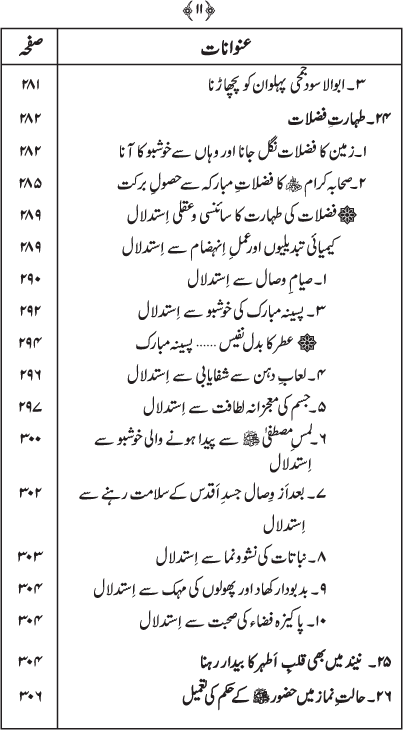 ﴿۱۱﴾
عنوانات صفحہ
۳۔ ابوالاسود جمحی پہلوان کو پچھاڑنا ۲۸۱
۲۴۔ طہارتِ فضلات ۲۸۲
۱۔ زمین کا فضلات نگل جانا اور وہاں سے خوشبو کا آنا ۲۸۲
۲۔ صحابہ کرام ﷺ کا فضلاتِ مبارکہ سے حصولِ برکت ۲۸۵
فضلات کی طہارت کا سائنسی و عقلی اِستدلال ۲۸۹
کیمیائی تبدیلیوں اور عملِ اِنہضام سے اِستدلال ۲۸۹
۱۔ صیامِ وصال سے اِستدلال ۲۹۰
۳۔ پسینہ مبارک کی خوشبو سے اِستدلال ۲۹۲
عطر کا بدلِ نفیس ...... پسینہ مبارک ۲۹۴
۴۔ لعابِ دہن سے شفایابی سے اِستدلال ۲۹۶
۵۔ جسم کی معجزانہ لطافت سے اِستدلال ۲۹۷
۶۔ لمسِ مصطفیٰ ﷺ سے پیدا ہونے والی خوشبو سے ۳۰۰
اِستدلال
۷۔ بعد اَز وِصال جسدِ اَقدس کے سلامت رہنے سے ۳۰۲
اِستدلال
۸۔ نباتات کی نشوونما سے اِستدلال ۳۰۳
۹۔ بدبودار کھاد اور پھولوں کی مہک سے اِستدلال ۳۰۴
۱۰۔ پاکیزہ فضاء کی صحبت سے اِستدلال ۳۰۴
۲۵۔ نیند میں بھی قلبِ اَطہر کا بیدار رہنا ۳۰۴
۲۶۔ حالتِ نماز میں حضور ﷺ کے حکم کی تعمیل ۳۰۶